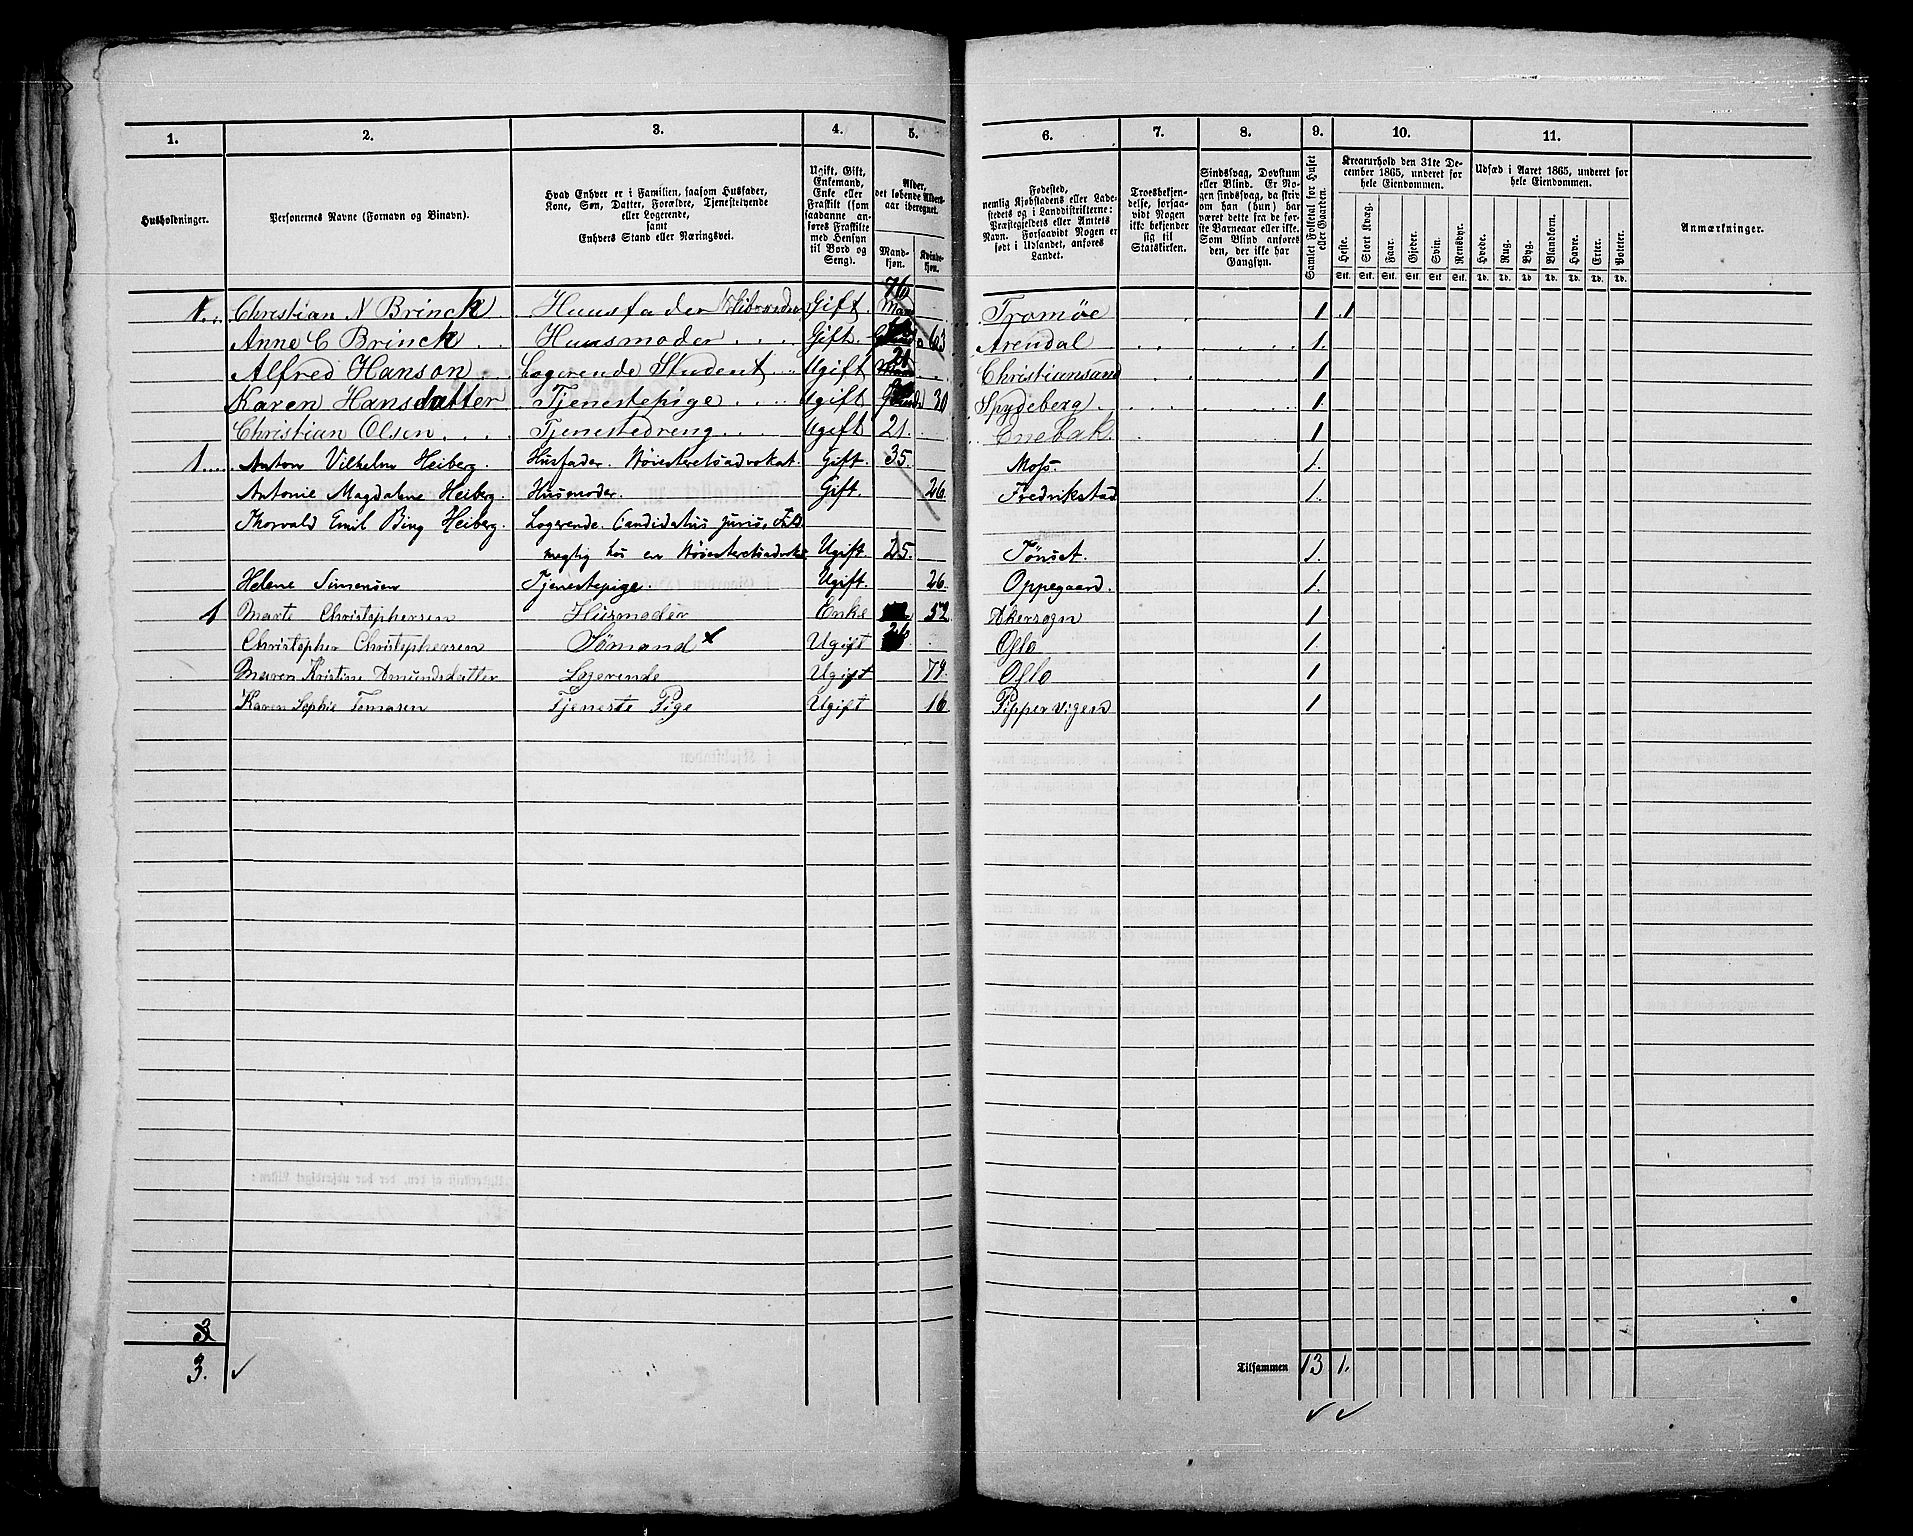 1. 2. 3. 4. 5. 6. 7. 8. 9. 10. 11.
Husholdninger.
Personernes Navne (Fornavn og Binavn).
Hvad Enhver er i Familien, saasom Husfader,
Kone, Søn, Datter, Forældre, Tjenestetyende
eller Logerende,
samt
Enhvers Stand eller Næringsvei.
Ugift, Gift,
Enkemand,
Enke eller
Fraskilt (som
saadanne an-
føres Fraskilte
med Hensyn
til Bord og
Seng).
Alder,
det løbende Alders-
aar iberegnet.
Mand-
kjøn.
Kvinde-
kjøn.
Fødested,
nemlig Kjøbstadens eller Lade-
stedets og i Landdistrikterne:
Præstegjeldets eller Amtets
Navn. Forsaavidt Nogen er
født i Udlandet, anføres
Landet.
Troesbekjen-
delse, forsaa-
vidt Nogen
ikke bekjender
sig til
Statskirken.
Sindssvag, Døvstum
eller Blind. Er No-
gen sindssvag, da skriv
om han (hun) har
været dette fra de før-
ste Barneaar eller ikke.
Som Blind anføres
den, der ikke har
Gangsyn.
Samlet Folketal for Huset
eller Gaarden.
Kreaturhold den 31te De-
cember 1865, underet for
hele Eiendommen.
Heste. Stort Kvæg. Faar. Gjeder. Svin. Rensdyr.
Stk. Stk. Stk. Stk. Stk. Stk.
Udsæd i Aaret 1865, underet for
hele Eiendommen.
Hvede. Rug. Byg. Blandkorn. Havre. Erter. Poteter.
Td. Td. Td. Td. Td. Td. Td.
Anmærkninger.
1. Christian N Brinck Huusfader Gift 76 Tromøe 1 1
Anne C Brinck Huusmoder Gift 63 Arendal 1
Alfred Hanson Logerende Student Ugift 21 Christiansand 1
Karen Hansdatter Tjenestepige Ugift 30 Spydeberg 1
Christian Olsen Tjenestedreng Ugift 21. Enebak 1
1 Anton Vilhelm Heiberg. Husfader. Høiesteretsadvokat. Gift. 35. Moss. 1.
Antonie Magdalene Heiberg. Husmoder. Gift. 26. Fredrikstad 1.
Thorvald Emil Bing Heiberg. Logerende. Candidatus juris,
megtig hos en Høiesteretsadvokat Ugift. 25. Tønset. 1.
Helene Simensen Tjenestepige. Ugift. 26. Oppegaard. 1.
1 Marte Christophersen Husmoder Enke 52 Akersogn 1
Christopher Christophersen Sømand x Ugift 26 Oslo 1.
Maren Kristine Amundsdatter Logerende Ugift 79 Oslo 1
Karen Sophie Tomasen Tjeneste Pige Ugift 16 Pipper Vigen 1
3
3. ✓
Tilsammen 13 1.
✓ ✓